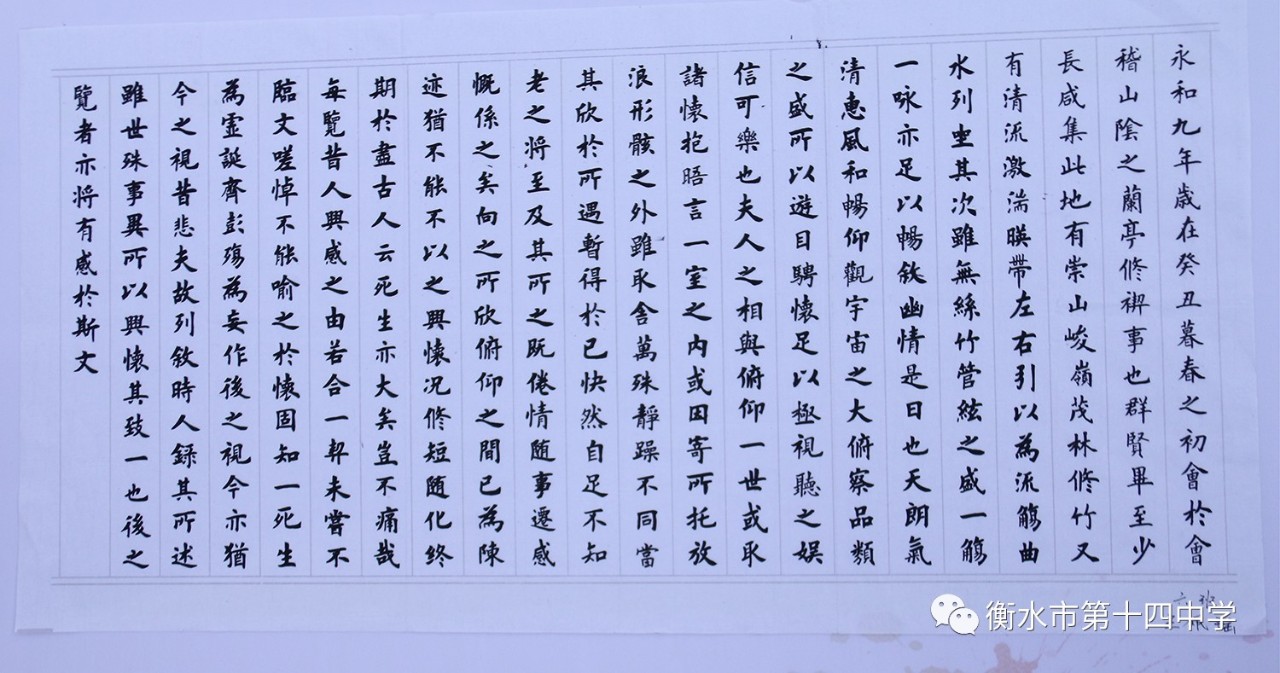 永和九年歳在癸丑暮春之初會於會
稽山陰之蘭亭修禊事也群賢畢至少
長咸集此地有崇山峻嶺茂林修竹又
有清流激湍暎帶左右引以為流觴曲
水列坐其次雖無絲竹管絃之盛一觴
一咏亦足以暢敘幽情是日也天朗氣
清惠風和暢仰觀宇宙之大俯察品類
之盛所以遊目騁懷足以極視聽之娛
信可樂也夫人之相與俯仰一世或取
諸懷抱晤言一室之內或因寄所托放
浪形骸之外雖取舍萬殊靜躁不同當
其欣於所遇暫得於己快然自足不知
老之将至及其所之既倦情随事遷感
慨係之矣向之所欣俯仰之間已為陳
迹猶不能不以之興懷况修短随化终
期於盡古人云死生亦大矣豈不痛哉
每覽昔人興感之由若合一契未嘗不
臨文嗟悼不能喻之於懷固知一死生
為虛誕齊彭殤為妄作後之視今亦猶
今之視昔悲夫故列敘時人録其所述
雖世殊事異所以興懷其致一也後之
覽者亦将有感於斯文
衡水市第十四中学